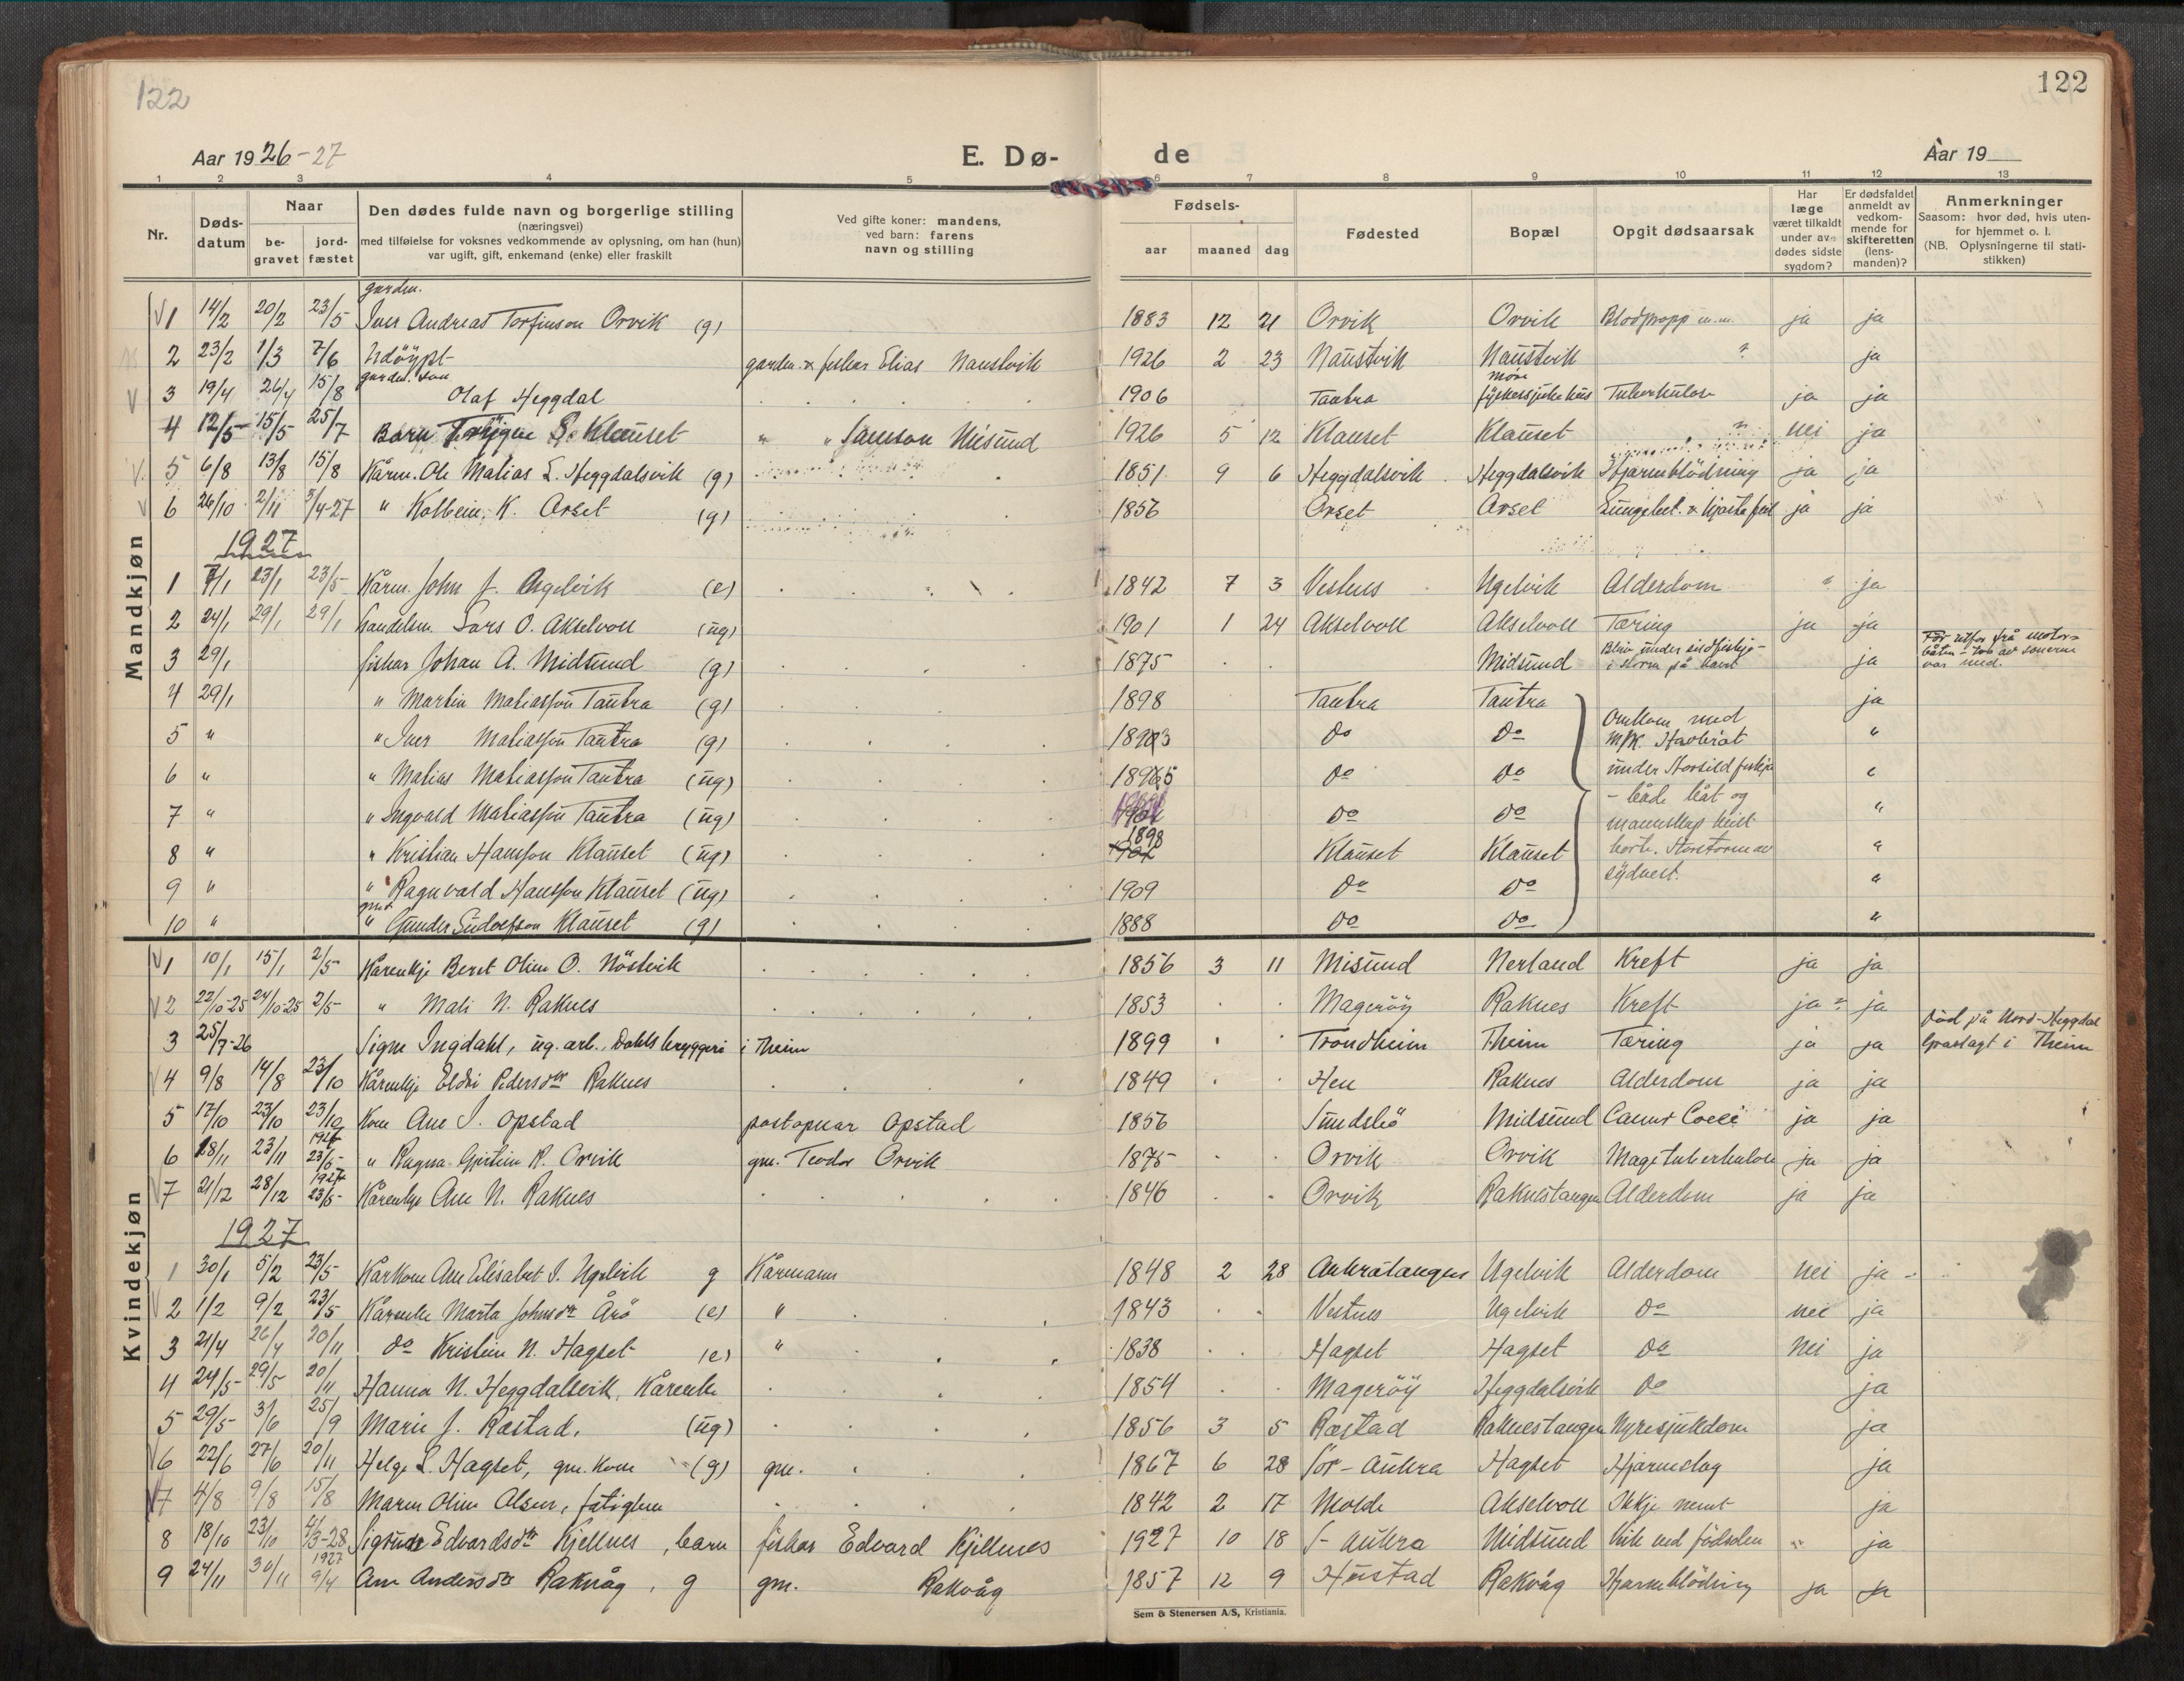 122
122
Aar 1926-27
E. Dø-
de
Aar 19
1 2 3 4 5 6 7 8 9 10 11 12 13
Nr.
Døds-
datum
Naar
be-
gravet
jord-
fæstet
Den dødes fulde navn og borgerlige stilling
(næringsvei)
med tilføielse for voksnes vedkommende av oplysning, om han (hun)
var ugift, gift, enkemand (enke) eller fraskilt
Ved gifte koner: mandens,
ved barn: farens
navn og stilling
Fødsels-
aar maaned dag
Fødested
Bopæl
Opgit dødsaarsak
Har
læge
været tilkaldt
under av-
dødes sidste
sygdom?
Er dødsfaldet
anmeldt av
vedkom-
mende for
skifteretten
(lens-
manden)?
Anmerkninger
Saasom: hvor død, hvis uten-
for hjemmet o. l.
(NB. Oplysningerne til stati-
stikken)
Mandkjøn
gardm.
1 14/2 20/2 23/5 Iver Andreas Torfinson Orvik (g) 1883 12 21 Orvik Orvik Blodpropp m.m. ja ja
2 23/2 1/3 7/6 Udöypt gardm. & fiskar Elias Naustvik 1926 2 23 Naustvik Naustvik ? ja
gardm. son Møre
3 19/4 26/4 15/8 Olaf Heggdal 1906 Tautra fylkessjukehus Tuberkulose ja ja
4 12/5 15/5 25/7 Barn Trygve S. Klauset " " Samson Misund 1926 5 12 Klauset Klauset ? nei ja
5 6/8 13/8 15/8 Kårm. Ole Matias L. Heggdalsvik (g) 1851 9 6 Heggdalsvik Heggdalsvik Hjarneblödning ja ja
6 26/10 2/11 3/4-27 " Kolbein K. Orset (g) 1856 Orset Orset Lungebet. & hjartefeil ja ja
1927
1 7/1 23/1 23/5 Kårm. John J. Ugelvik (e) 1842 7 3 Vestnes Ugelvik Alderdom " ja
2 24/1 29/1 29/1 handelsm. Lars O. Akselvoll (ug) 1901 1 24 Akselvoll Akselvoll Tæring ja ja
3 29/1 fiskar Johan A. Midsund (g) 1875 Midsund Blev under sildfiskje i storm på havet ja För utfor frå motor-
båten - to av sonerne
var med.
4 29/1 " Martin Matiasson Tautra (g) 1898 Tautra Tautra ja
5 " " Iver Matiasson Tautra (g) 1893 do do "
6 " " Matias Matiasson Tautra (ug) 1895 do do "
7 " " Ingvald Matiasson Tautra (ug) do do "
8 " " Kristian Hansson Klauset (ug) 1898 Klauset Klauset "
9 " " Ragnvald Hansson Klauset (ug) 1909 do do "
10 " " Gunder Gudolfson Klauset (g) 1888 do do "
Omkom med
M/K. Havbråt
under Storsildfiskje
- både båt og
mannskap heilt
bort. Storstorm av
sydvest.
Kvindekjøn
1 10/1 15/1 2/5 Kårenkje Beret Oline O. Nöstvik 1856 3 11 Misund Nerland Kreft ja ja
2 22/10-25 24/10-25 2/5 " Mali N. Raknes 1853 Magerøy Raknes Kreft ja ? ja
3 25/7-26 Signe Ingdahl, ug. arb. Dahls bryggeri i Theim 1899 Trondheim Theim Tæring ja ja Död på Nord-Heggdal
Gravlagt i Theim
4 9/8 14/8 23/10 Kårenkje Eldri Pedersdtr Raknes 1849 Hen Raknes Alderdom ja ja
5 17/10 23/10 23/10 Kone Ane I. Opstad postopnar Opstad 1856 Sundsbö Midsund Cancer Coeci ja ja
6 18/11 23/11 23/5 1927 " Ragna Gjertine R. Orvik gm. Teodor Orvik 1875 Orvik Orvik Magetuberkulose ja ja
7 21/12 28/12 23/5 1927 Kårenkje Ane N. Raknes 1846 Orvik Raknestangen Alderdom ja ja
1927
1 30/1 5/2 23/5 Kårkone Ane Elisabet I. Ugelvik g Kårmann 1848 2 28 Aukratangen Ugelvik Alderdom nei ja
2 1/2 9/2 23/5 Kårenke Marta Johnsdtr Årö (e) " 1843 Vestnes Ugelvik do nei ja
3 21/4 26/4 20/11 do Kristine N. Hagset (e) " 1838 Hagset Hagset do Nei ja
4 24/5 29/5 20/11 Hanna N. Heggdalsvik, Kårenke 1854 Magerøy Heggdalsvik do ja
5 29/5 3/6 25/9 Marie J. Rastad, (ug) 1856 3 5 Rastad Raknestangen Nyresjukdom ja
6 22/6 27/6 20/11 Helge L. Hagset, gm. kone (g) gm. 1867 6 28 Sör-Aukra Hagset Hjarneslag ja
7 4/8 9/8 15/8 Maren Oline Olsen, fatiglem 1842 2 17 Molde Akselvoll Ikkje nemt ja
8 18/10 23/10 4/3-28 Sigrud Edvardsdtr Kjellnes, barn fiskar Edvard Kjellnes 1927 10 18 S-Aukra Midsund Veik ved födselen " ja
9 24/11 30/11 1927 9/4 Ane Andersdtr Rakvåg, g gm. Rakvåg 1857 12 9 Hustad Rakvåg Hjarneblödning ja ja
Sem & Stenersen A/S, Kristiania.